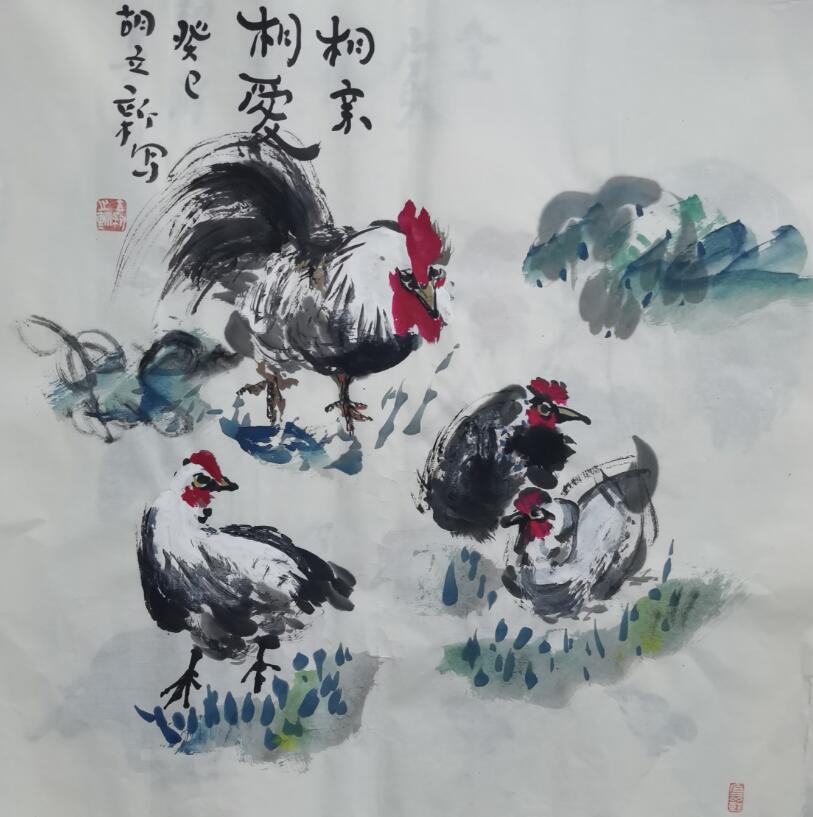 相亲
相爱
癸巳
胡立新写